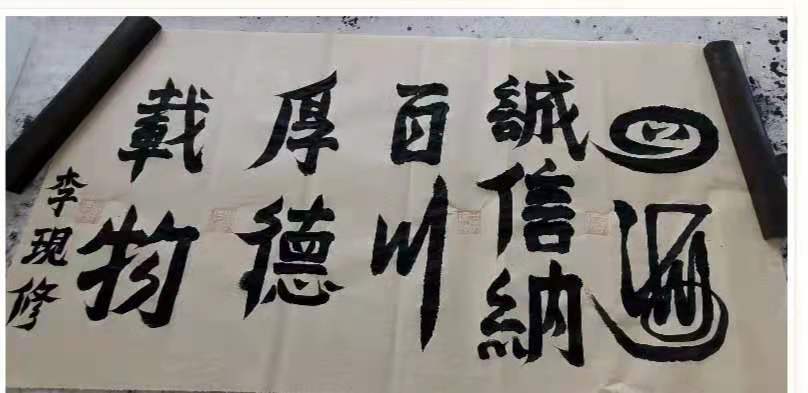 誠信納
百川
厚德
載物
李現修